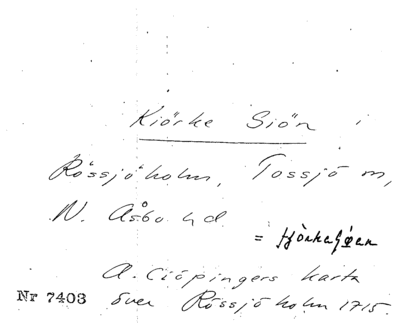 Kiörke Siön
Rössjöholm, Tossjö m,
N. Åsbo hd
= Hjörkesjöen
A. Ciöpingers karta
Nr 7403 över Rössjöholm 1715.